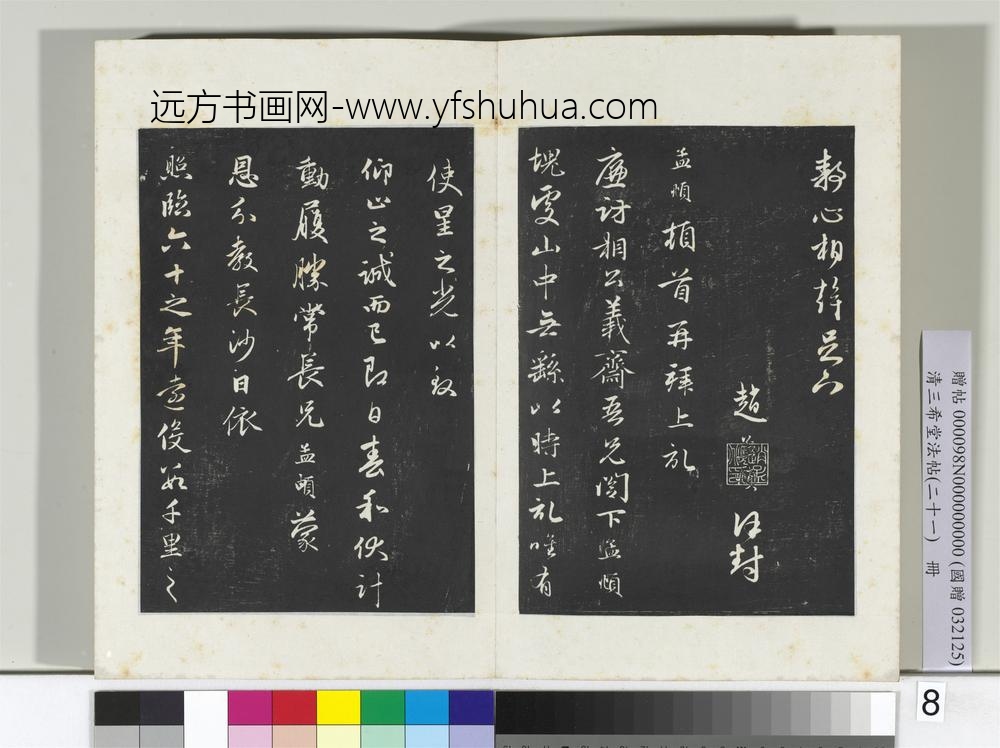 远方书画网-www.yfshuhua.com
心相足下
趙
謹封
孟頫頓首再拜上記
廉訪相公義齋吾兄閣下孟頫
塊處山中無繇以時上記唯有
使星之光以致
仰止之誠而已即日春和伏計
動履勝常長兄孟頫蒙
恩分教長沙日依
照臨六十之年遠役數千里之
贈帖 000098N000000000 (國贈 032125)
清三希堂法帖(二十一) 冊
8